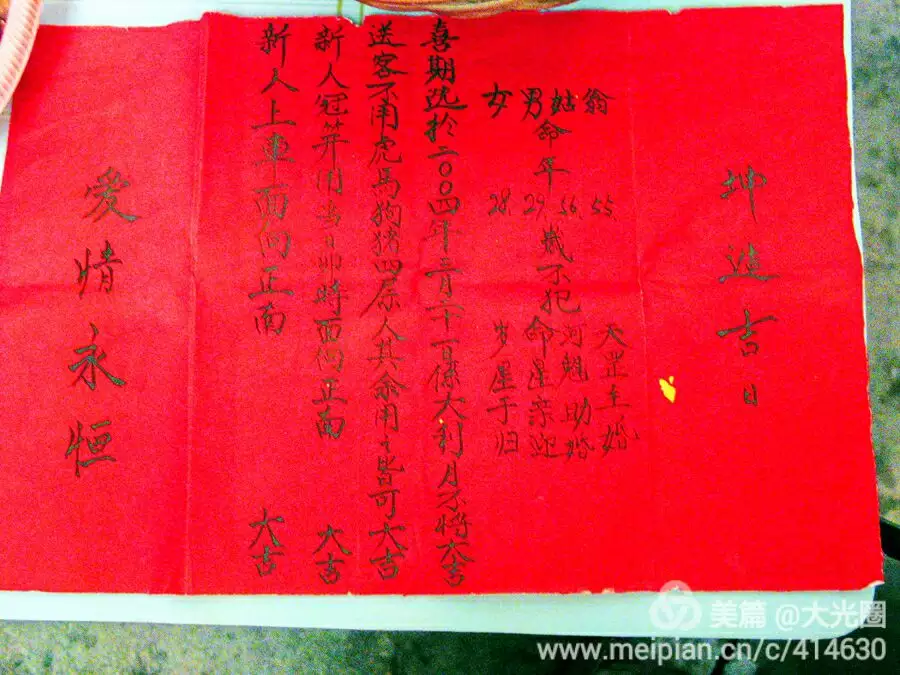 坤造吉日
翁 55 天罡主婚
姑 56 河魁助婚
男命年 29 歲不犯命星亲迎
女 28 岁星于归
喜期选於二〇〇四年二月二十一日係大利月不将大吉
送客不用虎馬狗猪四属人其余用之皆可大吉
新人冠笄用当日卯時面向正南 大吉
新人上車面向正南 大吉
愛情永恒
美篇 @大光圈
www.meipian.cn/c/414630